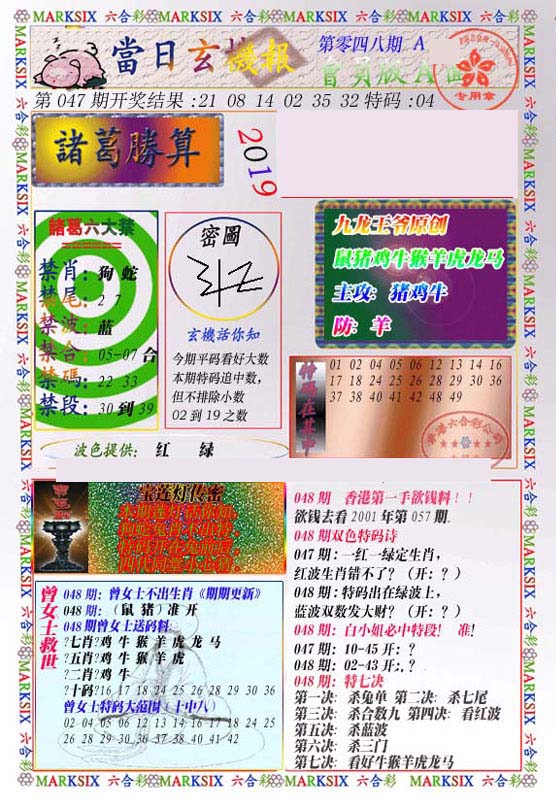 MARKSIX 六合彩 MARKSIX 六合彩 MARKSIX 六合彩 MARKSIX 六合彩
當日玄機報
第零四八期 A
會員版 A 面
专用章
第 047 期开奖结果：21 08 14 02 35 32 特码：04
諸葛勝算
2019
諸葛六大禁
禁肖：狗 蛇
禁尾：2 7
禁波：蓝
禁合：05-07 合
禁碼：22 33
禁段：30 到 39
密圖
玄機話你知
今期平码看好大数
本期特码追中数，
但不排除小数
02 到 19 之数
九龙王爷原创
鼠猪鸡牛猴羊虎龙马
主攻: 猪鸡牛
防: 羊
特码在其中
01 02 04 05 06 12 13 14 16
17 18 24 25 26 28 29 30 36
37 38 40 41 42 48 49
波色提供: 红 绿
宝莲灯传密
曾女士救世
048 期：曾女士不出生肖《期期更新》
048 期：（鼠 猪）准 开
048 期曾女士送码料:
?七肖?鸡 牛 猴 羊 虎 龙 马
?五肖?鸡 牛 猴 羊 虎
?二肖?鸡 牛
?十码?16 17 18 24 25 26 28 29 30 36
曾女士特码大范围（十中八）
02 04 05 06 12 13 14 16 17 18 24 25
26 28 29 30 36 37 38 40 41 42
048 期 香港第一手欲钱料！！
欲钱去看 2001 年第 057 期.
048 期双色特码诗
047 期: 一红一绿定生肖，
红波生肖错不了？（开：？）
048 期: 特码出在绿波上，
蓝波双数发大财？（开：？）
048 期: 白小姐必中特段！ 准！
047 期: 10-45 开: ？
048 期: 02-43 开: .？
048 期: 特七决
第一决: 杀兔单 第二决: 杀七尾
第三决: 杀合数九 第四决: 看红波
第五决: 杀蓝波
第六决: 杀三门
第七决: 看好牛猴羊虎龙马
MARKSIX 六合彩 MARKSIX 六合彩 MARKSIX 六合彩 MARKSIX 六合彩